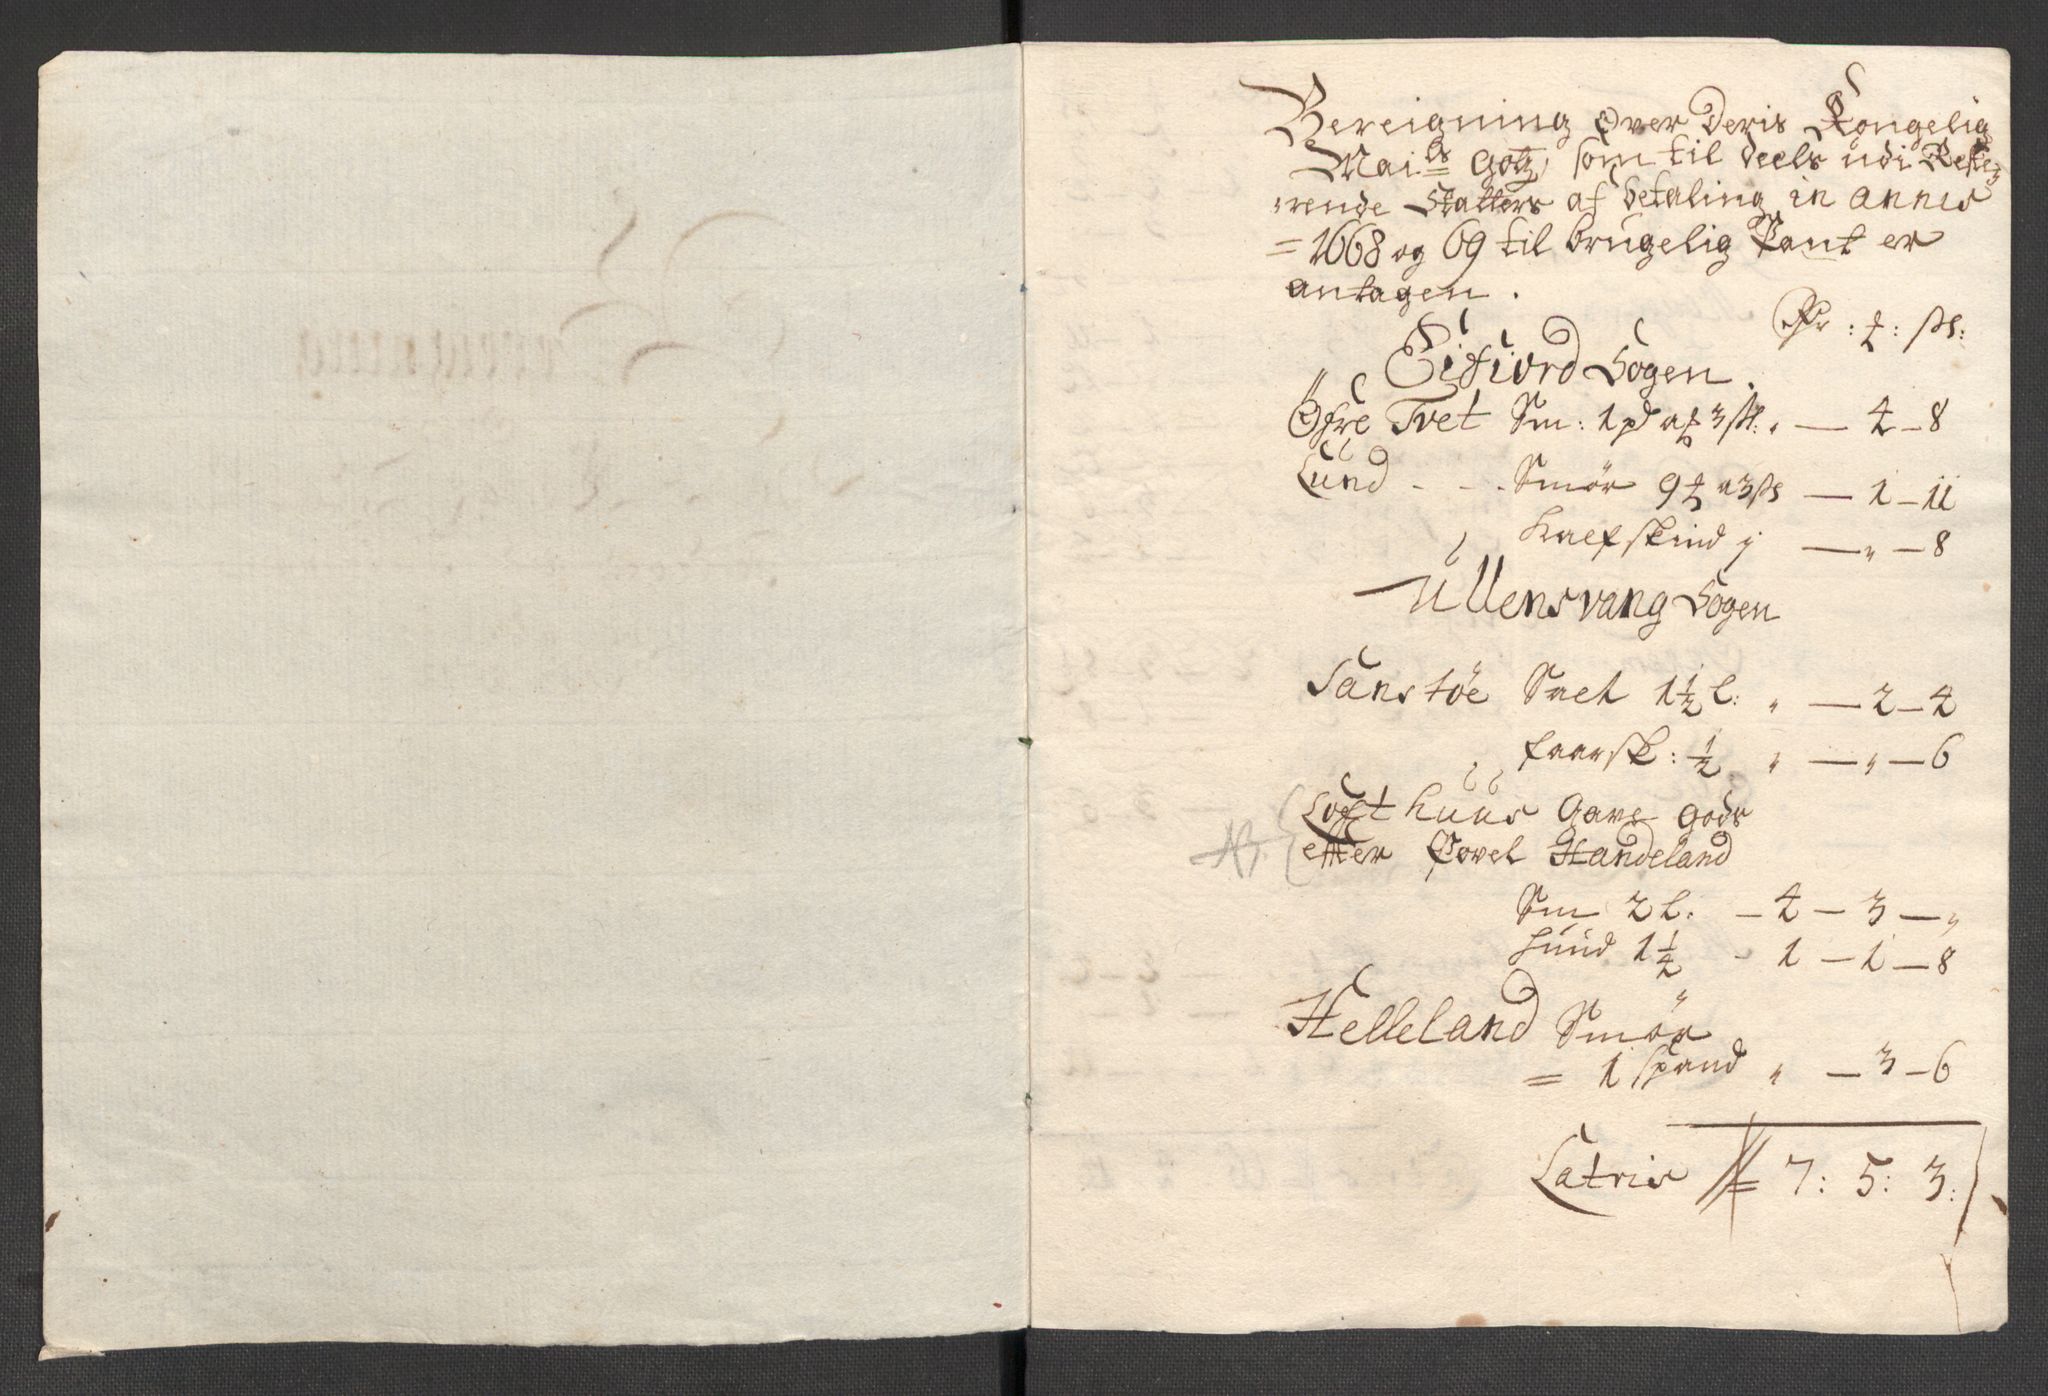 Bereigning over Deris Kongelig
Mai:ts Gotz, som til deels udi Reste-
rende Skatters af betaling in annis
= 1668 og 69 til brugelig Pant er
antagen.
: ₰ : sk:
Eifiord Sogen.
Øfre Tvet Sm: 1 pd a ₰ 3 sk: — 4 – 8
Lund - - Smør 9 ₰ a 3 sk — 1 – 11
Kalfskind j — " – 8
Ullensvang Sogen
Sanstøe Salt 1½ l: " — 2 – 4
faarsk: ½ " — " – 6
NB. Lofthuus Gave gods
etter Povel Handeland
Sm 2 l. – 4 – 3 – "
huud 1¼ - 1 – 1 – 8
Helleland Smør
= 1 Spand " — 3 – 6
Latris = 7: 5: 3: